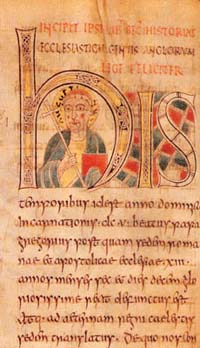 INCIPIT IPSIUS HISTORIAE
ECCLESIASTICAE GENTIS ANGLORUM
LEGE FELICITER
hIS
temporibus id est anno domini
incarnationis dc u beatus papa
gregorius post quam sedem roma
nae et apostolicae ecclesiae xiii
annos menses sex et dies decem glo
riosissime rexit defunctus est
atque ad aeternam regni caelestis
sedem translatus. De quo nos con